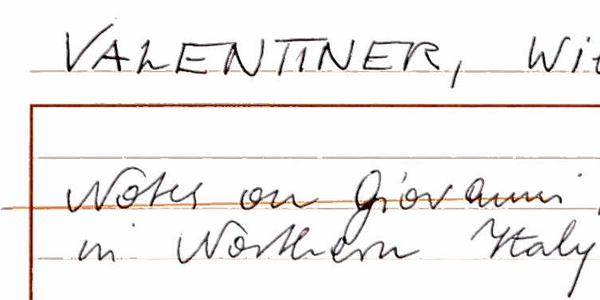 VALENTINER, Wi
Notes on Giovanni
in Northern Italy